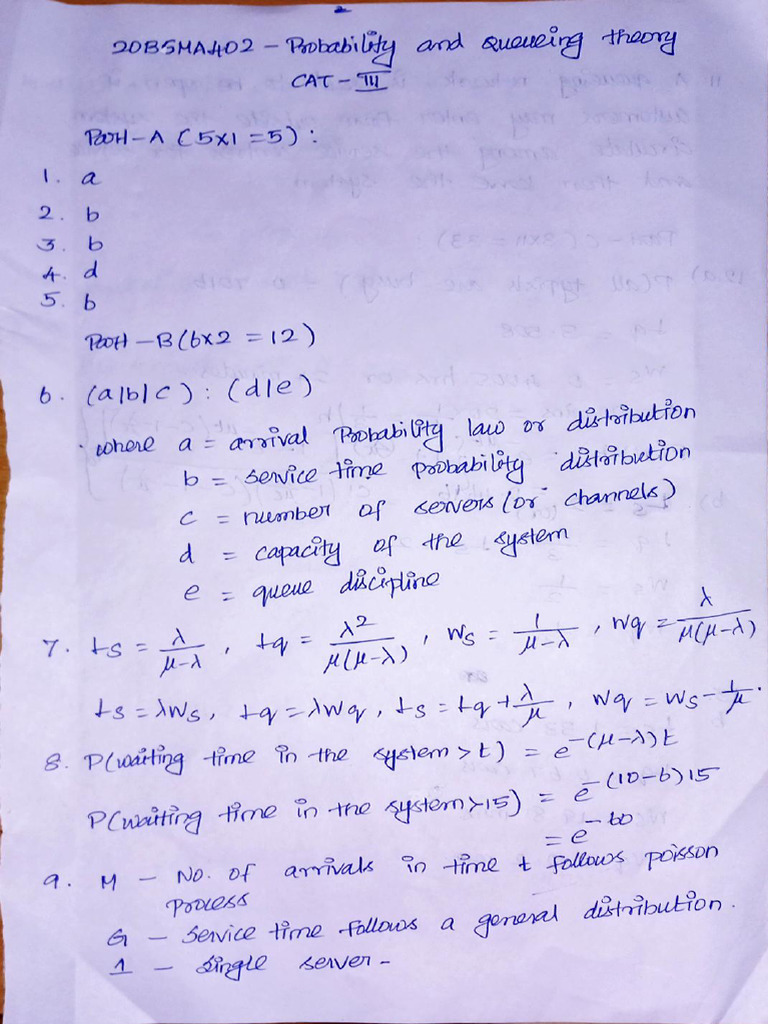 20BSMA402 - Probability and Queueing theory
CAT - III
Part - A (5x1 = 5) :
1. a
2. b
3. b
4. d
5. b
Part - B (6x2 = 12)
6. (a/b/c) : (d/e)
where a = arrival Probability law or distribution
b = service time probability distribution
c = number of servers (or channels)
d = capacity of the system
e = queue discipline
7. Ls = λ/(μ-λ), Lq = λ²/(μ(μ-λ)), Ws = 1/(μ-λ), Wq = λ/(μ(μ-λ))
Ls = λWs, Lq = λWq, Ls = Lq + λ/μ, Wq = Ws - 1/μ.
8. P(waiting time in the system > t) = e^-(μ-λ)t
P(waiting time in the system > 15) = e^-(10-6)15
= e^-60
9. M - No. of arrivals in time t follows poisson
process
G - Service time follows a general distribution.
1 - Single server -